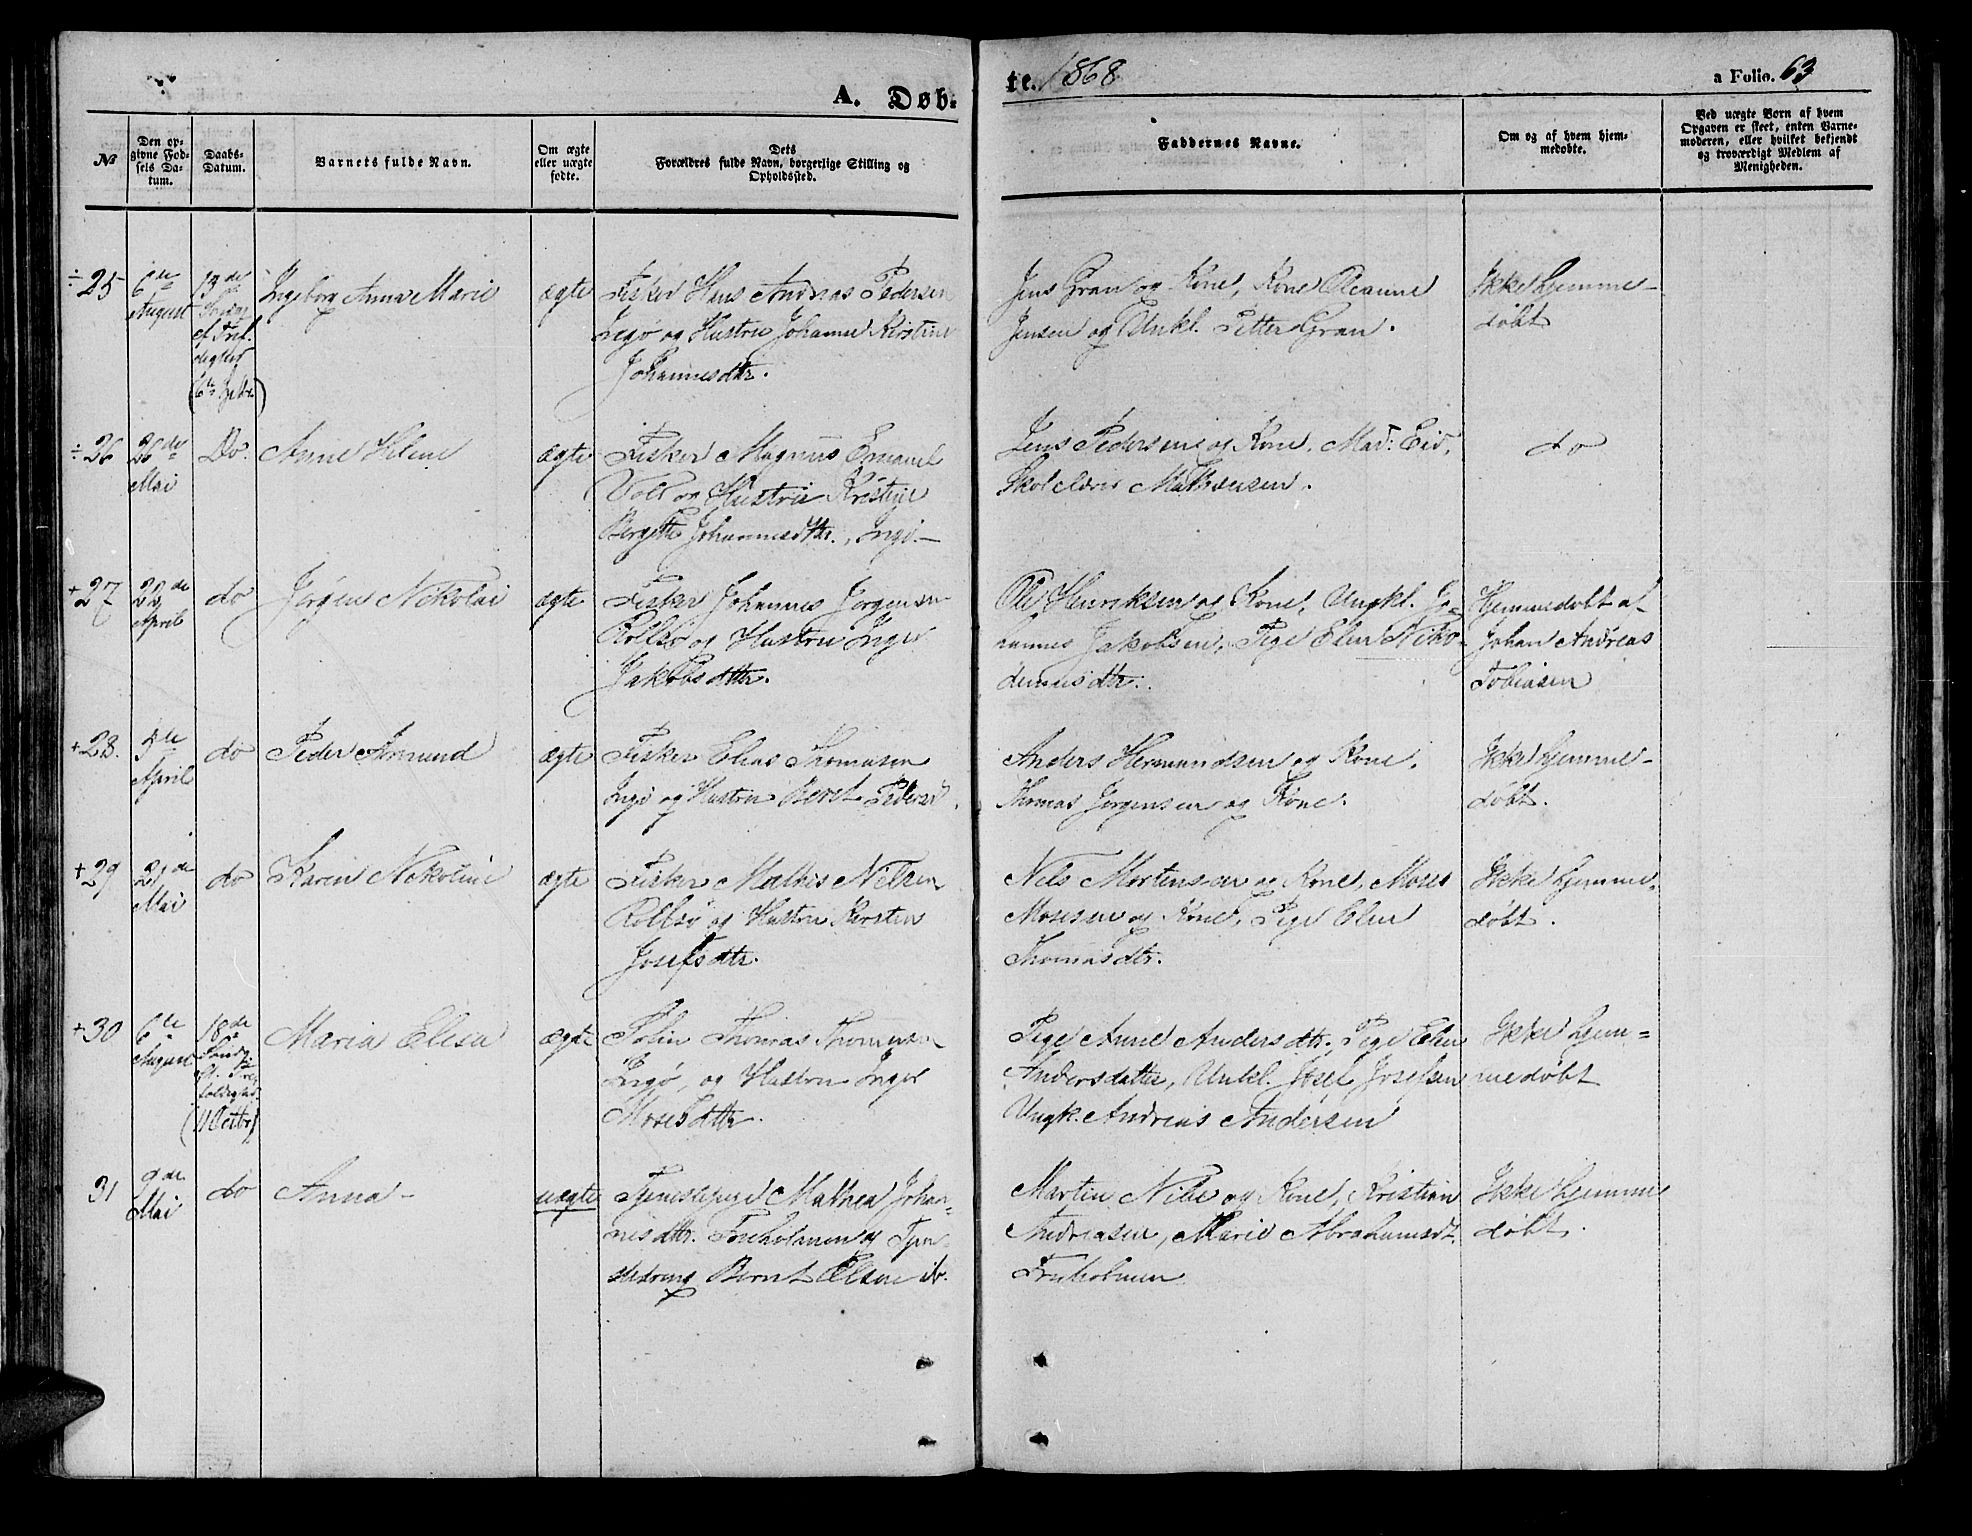 A. Døb-
te. 1868
a Folio. 63
№
Den op-
givne Fød-
sels Da-
tum.
Daabs-
Datum.
Barnets fulde Navn.
Om ægte
eller uægte
fødte.
Dets
Forældres fulde Navn, borgerlige Stilling og
Opholdssted.
Faddernes Navne.
Om og af hvem hjem-
medøbte.
Ved uægte Børn af hvem
Opgaven er skeet, enten Barne-
moderen, eller hvilket bekjendt
og troværdigt Medlem af
Menigheden.
÷25
6te
August
13de
(6te
Ingeborg Anna Marie
ægte
Fisker Hans Andreas Pedersen
Ingø og Hustru Johanne Kirstine
Johannesdttr.
Jens Gran og Kone, Kone Oleanne
Jensen og Unkl. Petter Gran.
Ikke hjemme-
døbt
÷26
26de
Mai
Do.
Anne Helene
ægte
Fisker Magnus Emanuel
Vold og Hustru Kristine
Bergitte Johannesdttr., Ingø.-
Jens Pedersen og Kone, Mad: Eid,
Skolelærer Mathiesen.
do
+27
22de
April
do
Jørgen Nikolai
ægte
Fisker Johannes Jørgensen
Rolfsø og Hustru Inger
Jakobsdttr.
Ole Henriksen og Kone, Ungkl. Jo-
hannes Jakobsen, Pige Elen Niko-
demusdtr.
Hjemmedøbt af
Johan Andreas
Tobiasen
+28.
5te
April
do
Peder Amund
ægte
Fisker Elias Thomasen
Ingø og Hustru Beret Pedersd.
Anders Hermundsen og Kone,
Thomas Jørgensen og Kone.
Ikke hjemme-
døbt.
+29
21de
Mai
do
Karen Nikoline
ægte
Fisker Mathis Nilsen
Rolfsø og Hustru Kirsten
Josefsdttr.
Nils Mortensen og Kone, Moses
Mosesen og Kone, Pige Elen
Thomasdtr.
Ikke hjemme-
døbt.
+30
6te
August
18de
Sønd.
(11 Octbr)
Maria Elisa
ægte
Thomas Thomasen
Ingø, og Hustru Inger
Mosesdttr.
Pige Anne Andersdtr., Pige Elen
Andersdatter, Unkl. Josef Josefsen
Ungk. Andreas Andersen
Ikke hjem-
medøbt
31
9de
Mai
do
Anna-
uægte
Tjenestepige Mathea Johan-
nesdttr. Fruholmen og Tjen-
stedreng Bernt Olsen ib.
Martin Nibe og Kone, Kristian
Andreasen, Marie Abrahamsdt.
Fruholmen
Ikke hjemme
døbt.